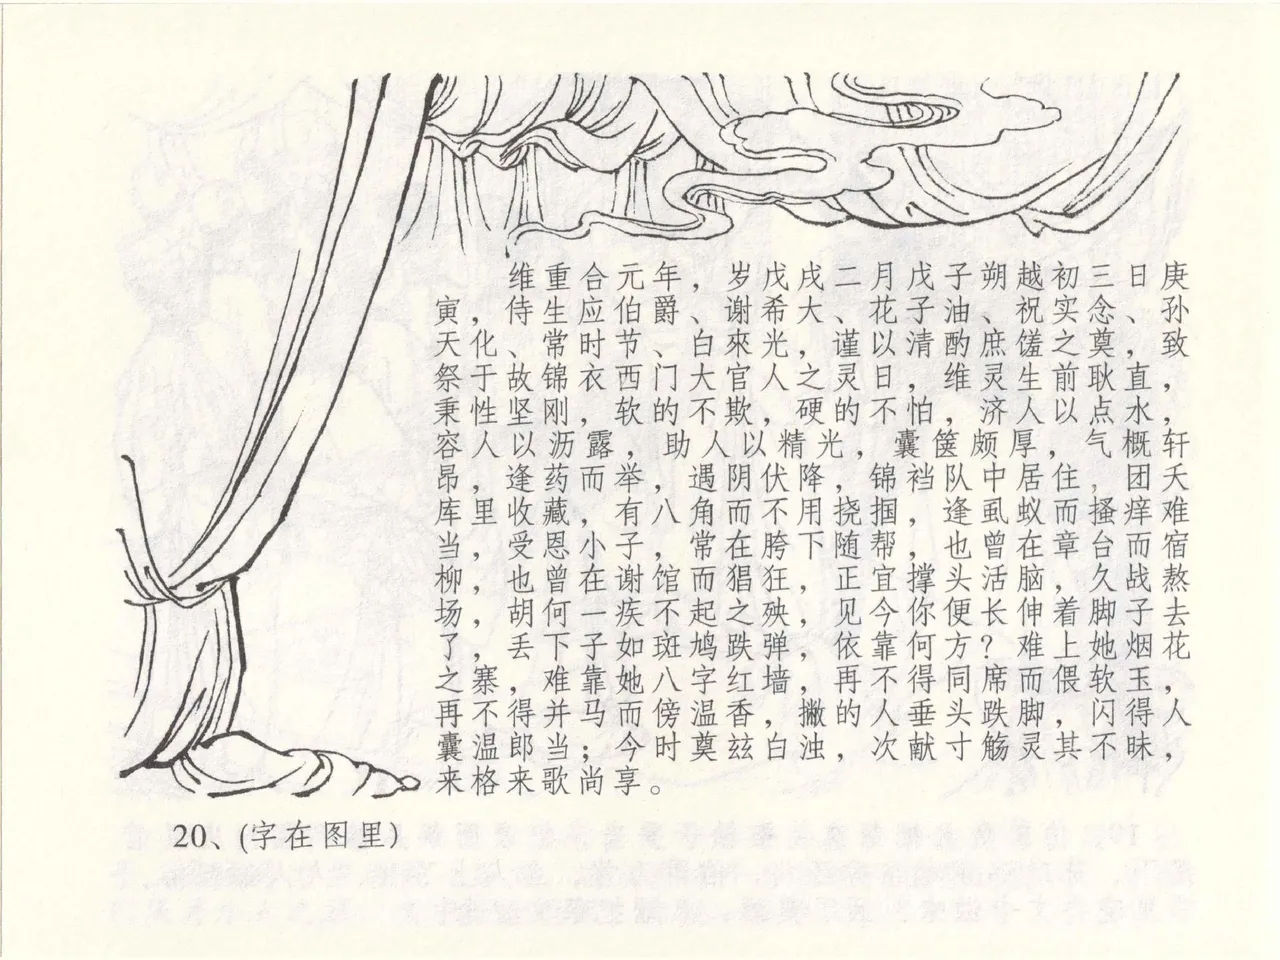 维重合元年，岁戊戌二月戊子朔越初三日庚
寅，侍生应伯爵、谢希大、花子油、祝实念、孙
天化、常时节、白來光，谨以清酌庶馐之奠，致
祭于故锦衣西门大官人之灵日，维灵生前耿直，
秉性坚刚，软的不欺，硬的不怕，济人以点水，
容人以沥露，助人以精光，囊箧颇厚，气概轩
昂，逢药而举，遇阴伏降，锦裆队中居住，团夭
库里收藏，有八角而不用挠掴，逢虱蚁而搔痒难
当，受恩小子，常在胯下随帮，也曾在章台而宿
柳，也曾在谢馆而猖狂，正宜撑头活脑，久战熬
场，胡何一疾不起之殃，见今你便长伸着脚子去
了，丢下子如斑鸠跌弹，依靠何方？难上她烟花
之寨，难靠她八字红墙，再不得同席而偎软玉，
再不得并马而傍温香，撇的人垂头跌脚，闪得人
囊温郎当；今时奠兹白浊，次献寸觞灵其不昧，
来格来歌尚享。
20、(字在图里)